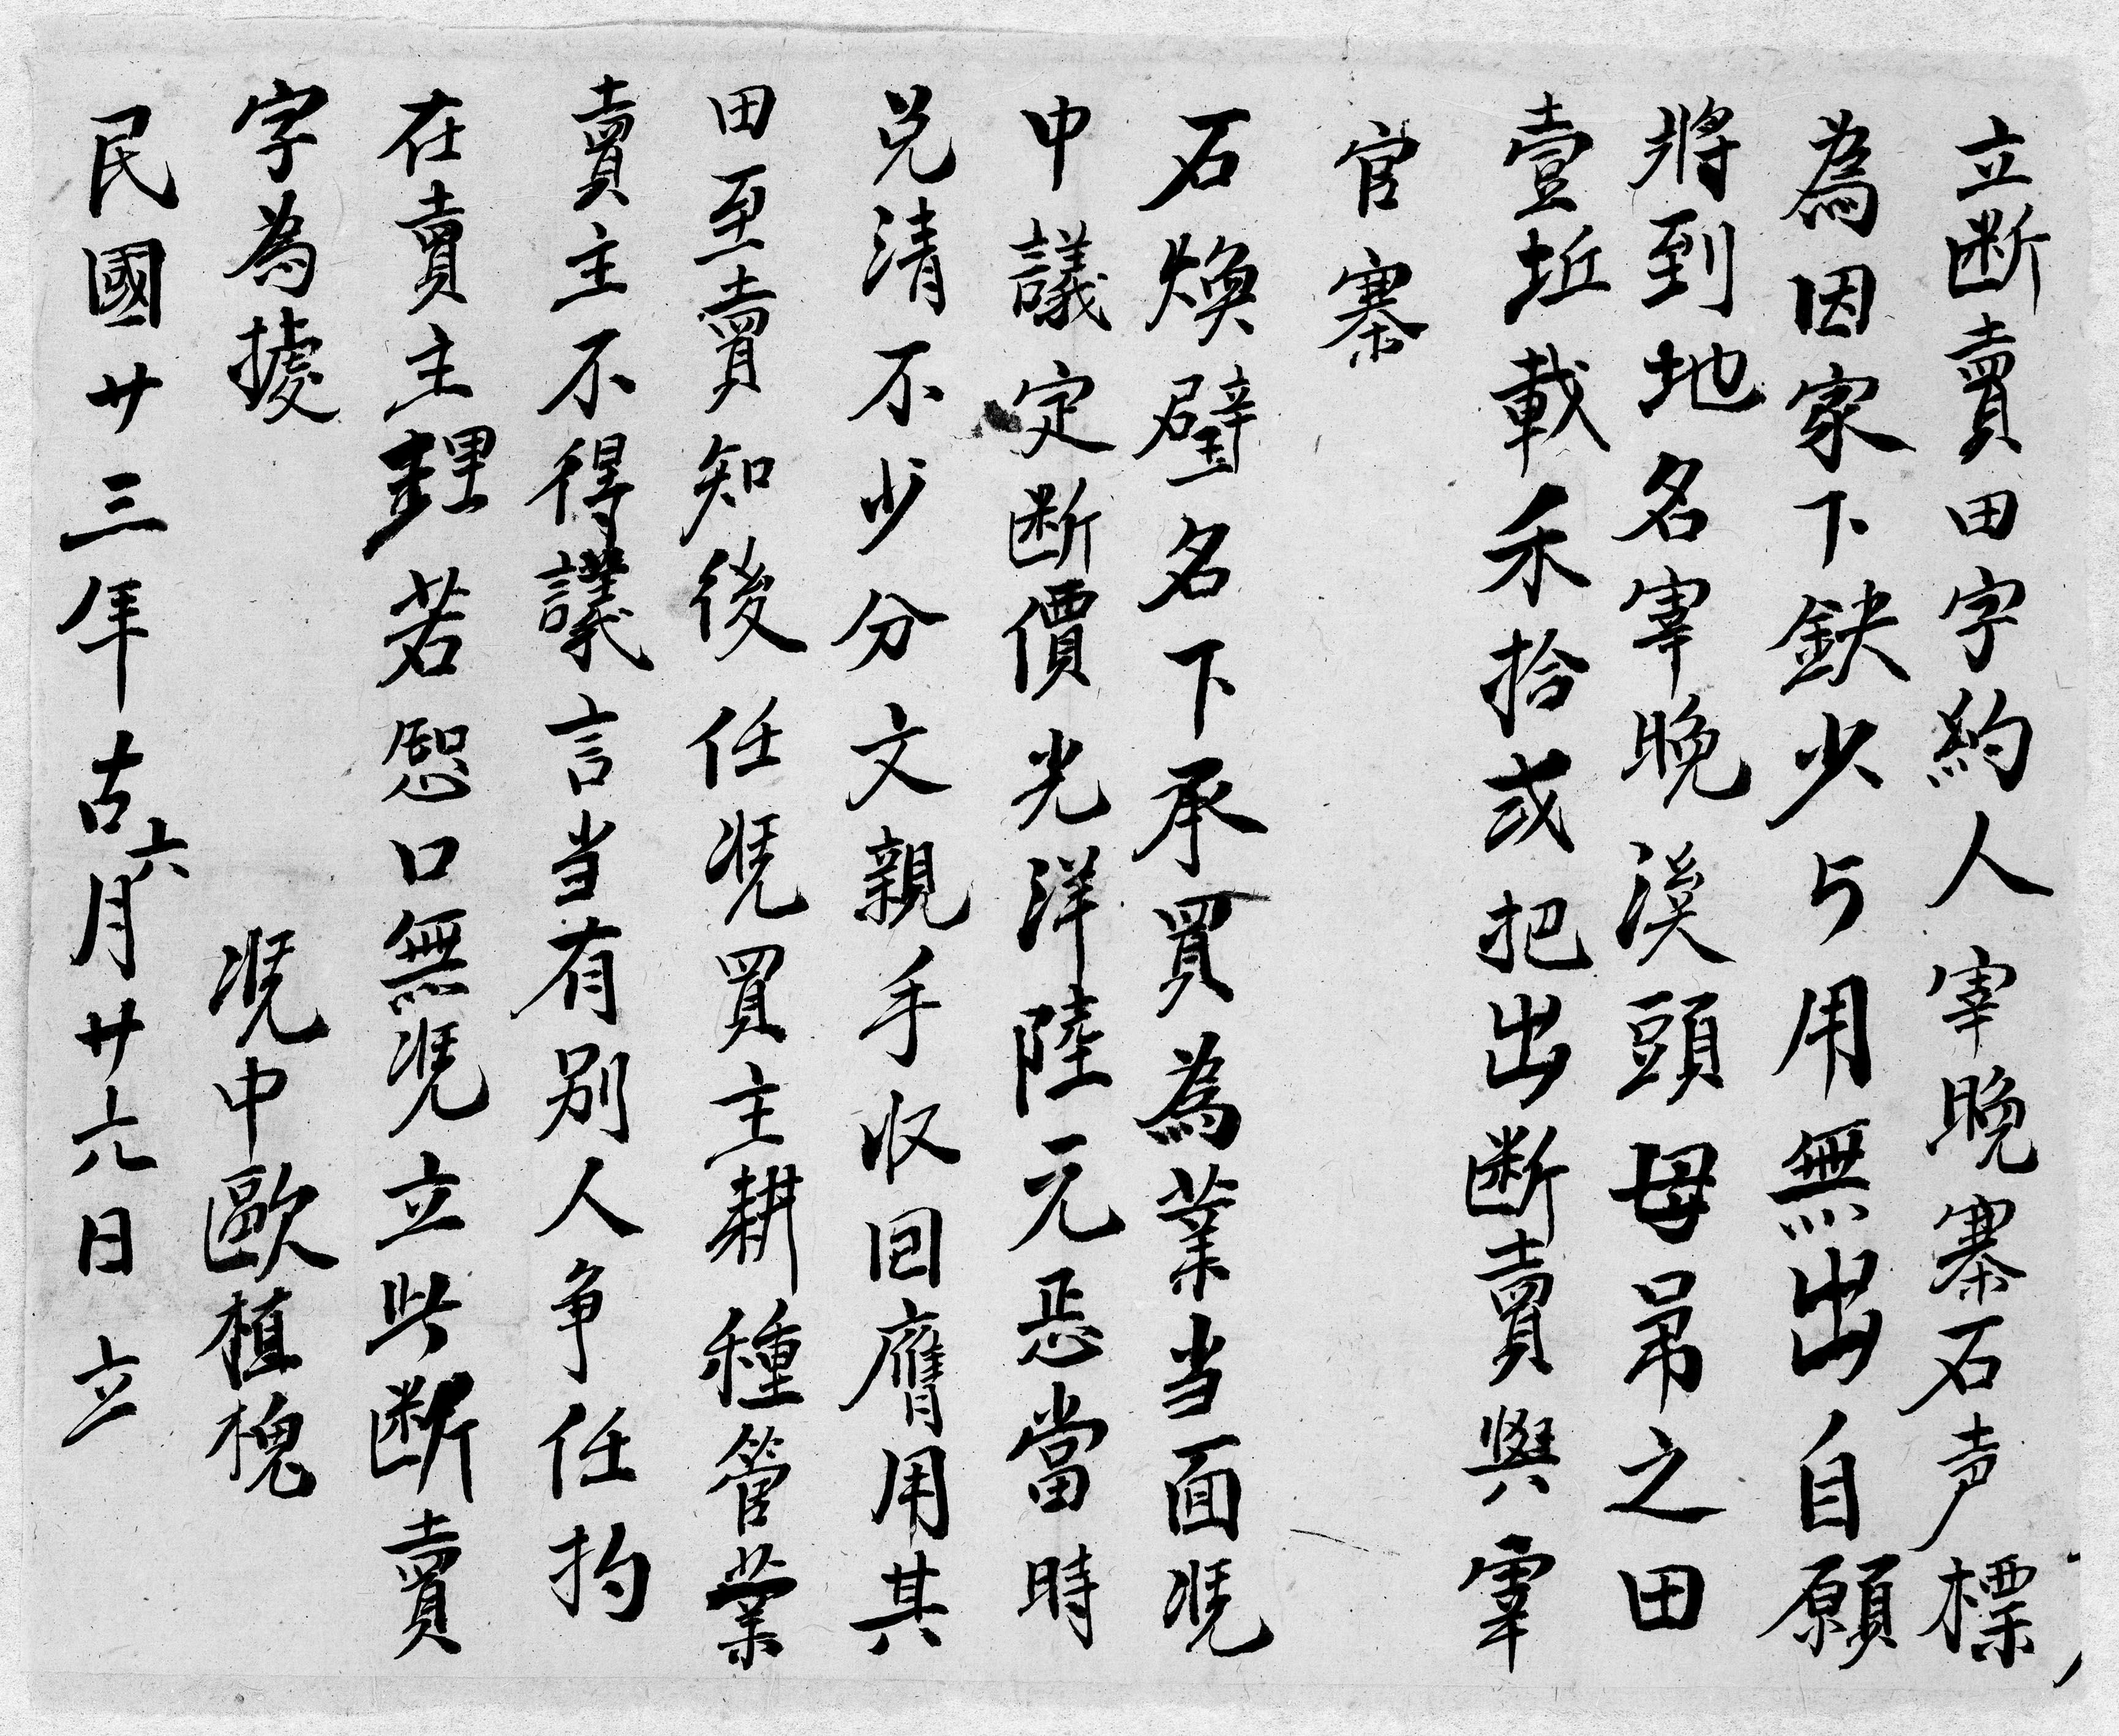 立断賣田字約人宰晚寨石声標
為因家下缺少⺂用無出自願
將到地名宰晚溪頭母吊之田
壹坵載禾拾弍把出断賣與宰
官寨
石煥璧名下承買為業当面凴
中議定断價光洋陸元惡當時
兑清不少分文親手収回膺用其
田至賣知後任凴買主耕種管業
賣主不得議言当有别人争任扚
在賣主理若恐口無凴立此断賣
字為據
凴中歐植槐
民國廿三年古六月廿六日立